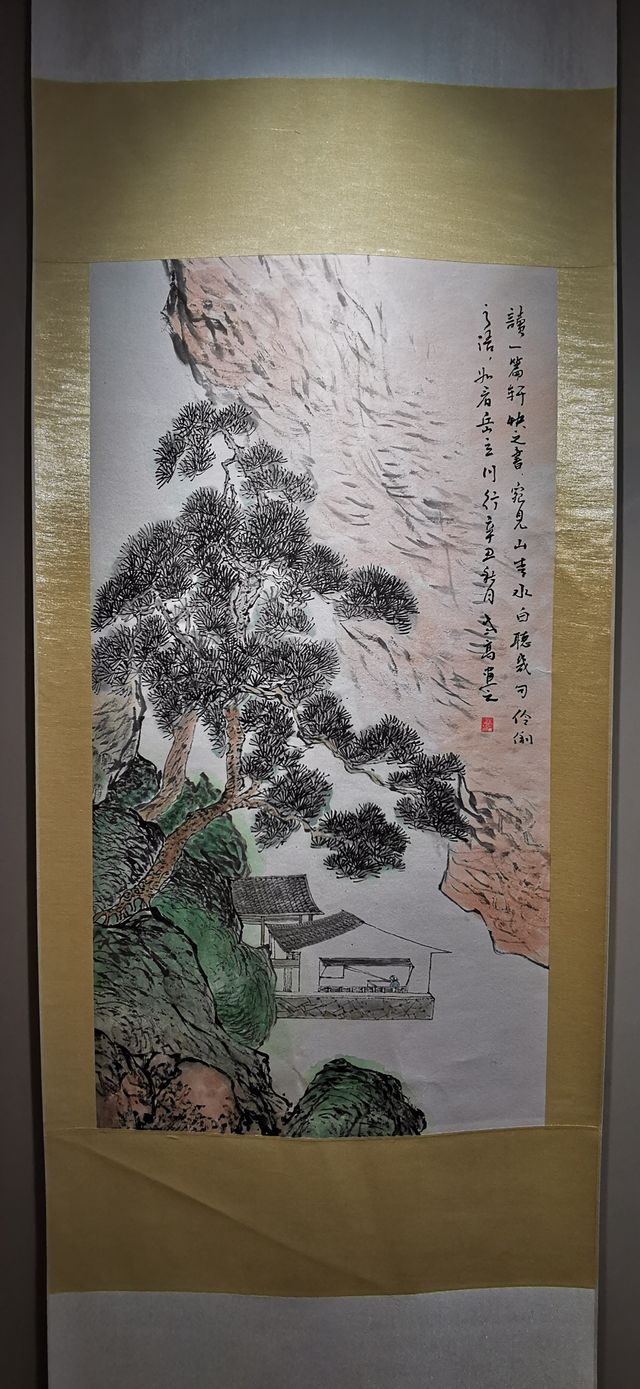 讀一篇轩快之書，宛見山青水白聽幾句伶俐
之语，如看岳立川行辛丑秋月